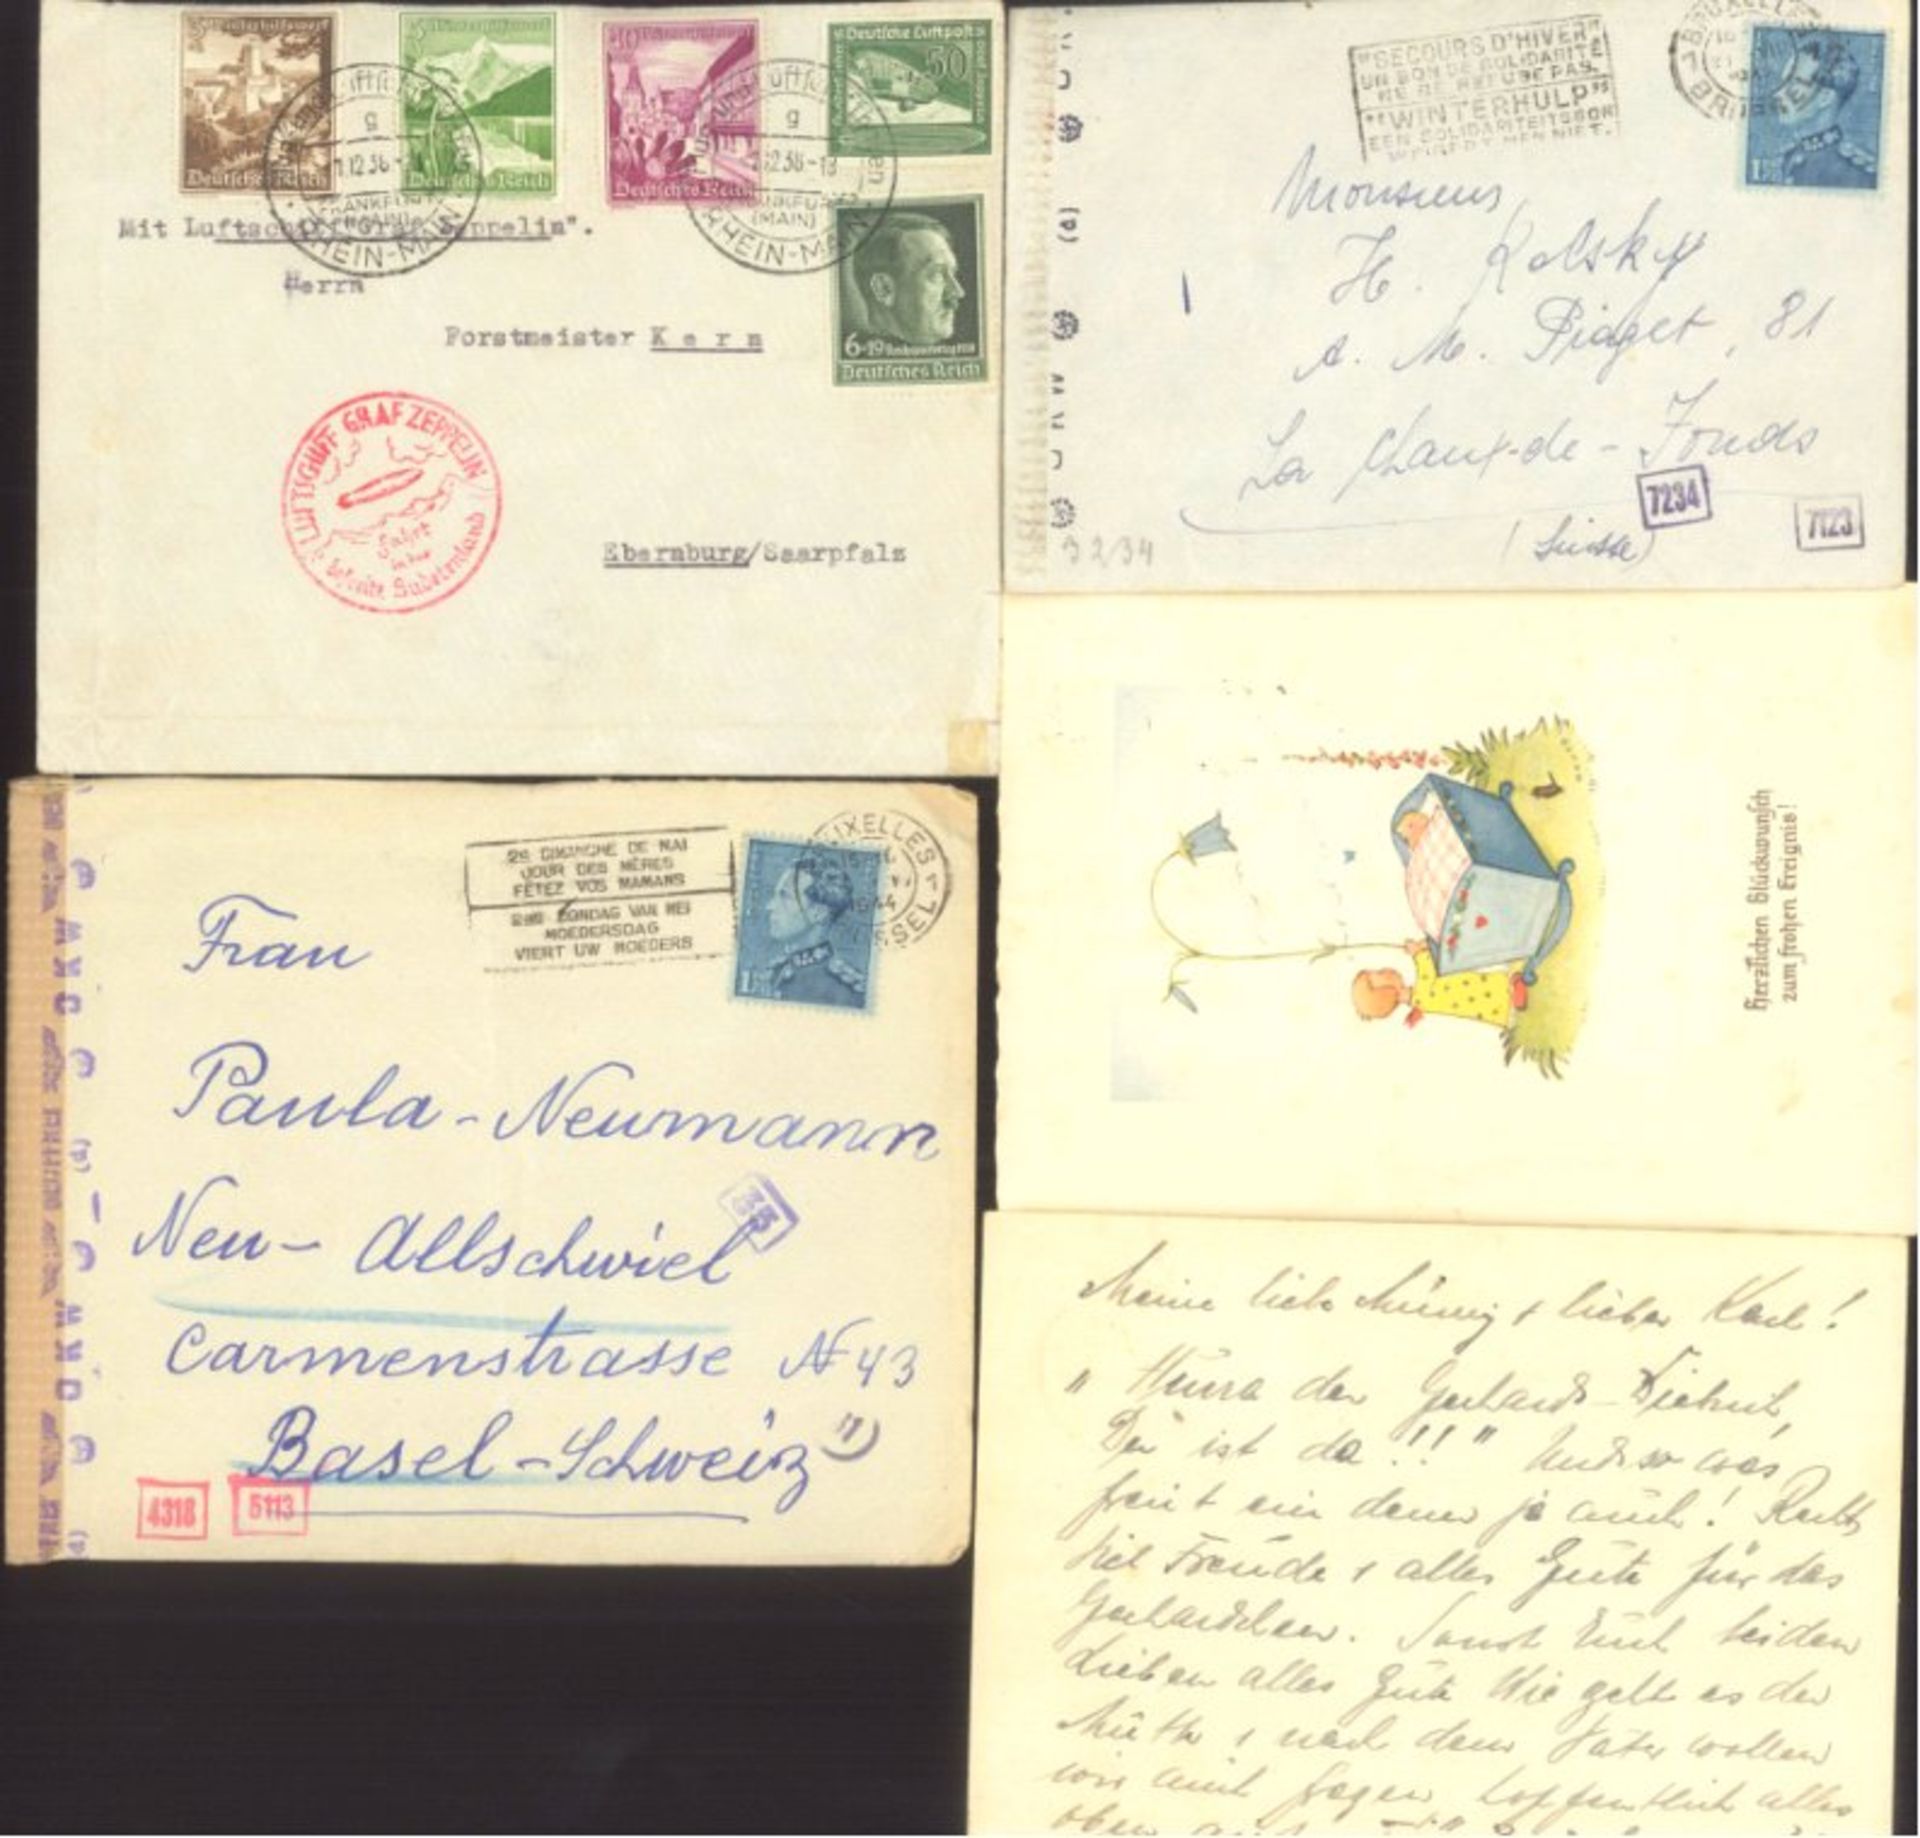 Winterhilfswerk
Deutsches Reich
Deutsches Reich
10
Deutsches Reich
Deutsche Luftpost
50
g
g
12.38-18
FRANKFURT
(MAIN)
(MAIN)
RHEIN-MAIN
RHEIN-MAIN
Mit Luftschiff "Graf Zeppelin".
Herrn
Forstmeister Kern
6+19
Deutsches Reich
LUFTSCHIFF GRAF ZEPPELIN
Fahrt
in das
befreite Sudetenland
Ebernburg/Saarpfalz
"SECOURS D'HIVER"
UN BON DE SOLIDARITÉ
NE SE REFUSE PAS.
"WINTERHULP"
EEN SOLIDARITEITSBON
WEIGERT MEN NIET.
BRUXELLES
BRUSSEL
Monsieur
H. Rolsky
A. M. Piaget, 81
La Chaux-de-Fonds
7234
7123
(Suisse)
3234
OKW
(d)
Herzlichen Glückwunsch
zum frohen Ereignis!
2E DIMANCHE DE MAI
JOUR DES MÈRES
FÊTEZ VOS MAMANS
2DE ZONDAG VAN MEI
MOEDERSDAG
VIERT UW MOEDERS
BRUXELLES 1
1944
BRUSSEL
Frau
Paula-Neumann
Neu-Allschwiel
Carmenstrasse N 43
Basel-Schweiz
4318
5113
OKW
(d)
OKW
(d)
Meine liebe & lieber Karl!
" Hurra der Gerhard-
Der ist da!!" Und so was
freut ein denn ja auch! Recht
viel Freude & alles Gute für das
Gerhardchen. Sonst Euch beiden
Lieben alles Gute Wie geht es der
Mutti & nach dem Vater wollen
wir auch fragen hoffentlich alles